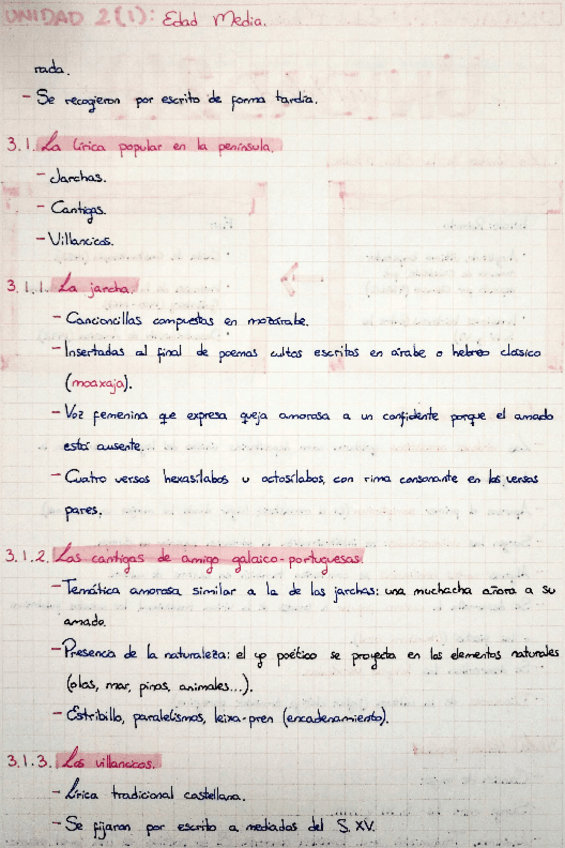 UNIDAD 2(1): Edad Media.
rada.
- Se recogieron por escrito de forma tardía.
3.1. La lírica popular en la península.
- Jarchas.
- Cantigas.
- Villancicos.
3.1.1. La jarcha.
- Cancioncillas compuestas en mozárabe.
- Insertadas al final de poemas cultos escritos en árabe o hebreo clásico
(moaxaja).
- Voz femenina que expresa queja amorosa a un confidente porque el amado
está ausente.
- Cuatro versos hexasílabos u octosílabos, con rima consonante en los versos
pares.
3.1.2. Las cantigas de amigo galaico-portuguesas
- Temática amorosa similar a la de las jarchas: una muchacha añora a su
amado.
- Presencia de la naturaleza: el yo poético se proyecta en los elementos naturales
(olas, mar, pinos, animales...).
- Estribillo, paralelismos, leixa-pren (encadenamiento).
3.1.3. Los villancicos.
- Lírica tradicional castellana.
- Se fijaron por escrito a mediados del S. XV.